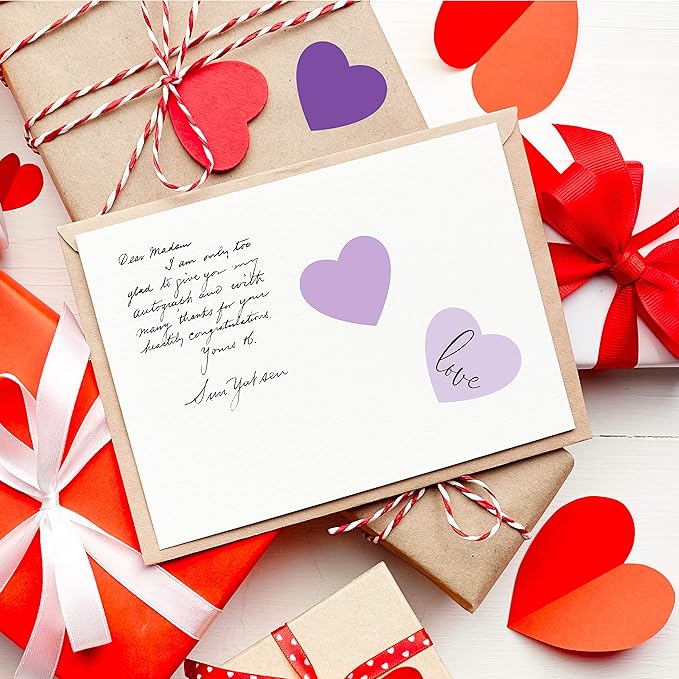 Dear Madam
I am only too
glad to give you my
autograph and with
many thanks for your
heartily congratulations.
Yours tr.
Sun Yat sen
love